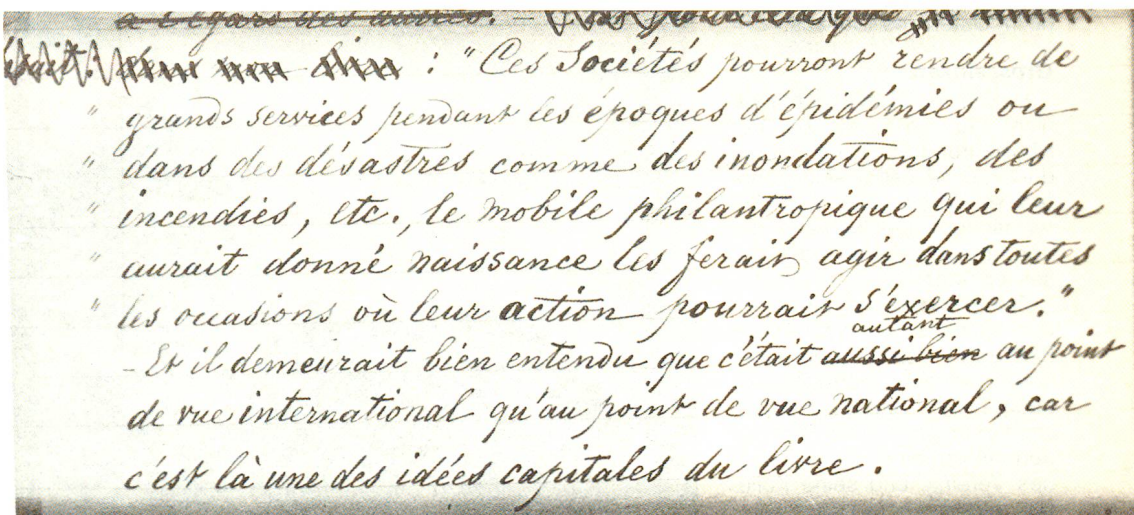 à l'égard des autres. –
: "Ces Sociétés pourront rendre de
" grands services pendant les époques d'épidémies ou
" dans des désastres comme des inondations, des
" incendies, etc., le mobile philantropique qui leur
" aurait donné naissance les ferait agir dans toutes
" les occasions où leur action pourrait s'exercer."
autant
– Et il demeurait bien entendu que c'était aussi bien au point
de vue international qu'au point de vue national, car
c'est là une des idées capitales du livre.